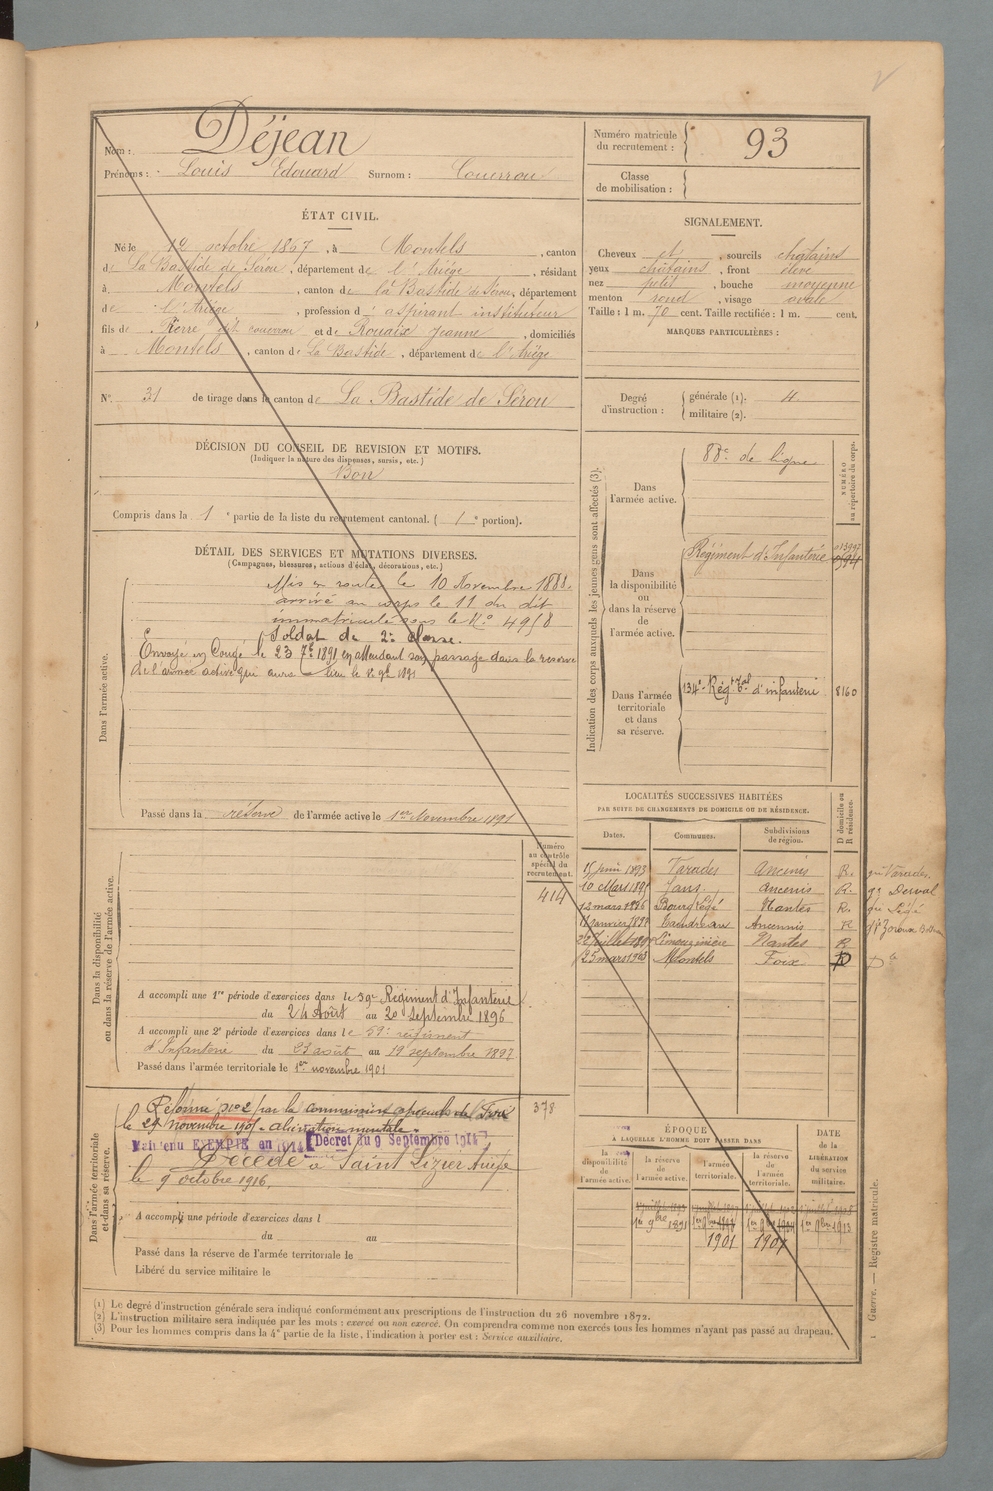 Nom : Déjean
Prénoms : Louis Edouard Surnom : Couerrou
Numéro matricule du recrutement : 93
Classe de mobilisation :
ÉTAT CIVIL.
Né le 12 octobre 1867, à Montels, canton
de La Bastide de Sérou, département de l'Ariège, résidant
à Montels, canton de la Bastide de Sérou, département
de l'Ariège, profession d'aspirant instituteur
fils de Pierre dit couerrou et de Rouaix Jeanne, domiciliés
à Montels, canton de La Bastide, département de l'Ariège
SIGNALEMENT.
Cheveux et, sourcils châtains
yeux châtains, front élevé
nez petit, bouche moyenne
menton rond, visage ovale
Taille : 1 m. 70 cent. Taille rectifiée : 1 m. cent.
MARQUES PARTICULIÈRES :
N° 31 de tirage dans le canton de La Bastide de Sérou
Degré d'instruction : générale (1).
militaire (2).
DÉCISION DU CONSEIL DE REVISION ET MOTIFS.
(Indiquer la nature des dispenses, sursis, etc.)
Bon
Compris dans la 1e partie de la liste du recrutement cantonal. (1e portion).
DÉTAIL DES SERVICES ET MUTATIONS DIVERSES.
(Campagnes, blessures, actions d'éclat, décorations, etc.)
Dans l'armée active.
Mis en route le 10 Novembre 1888.
arrivé au corps le 11 du dit
immatriculé sous le N° 4958
Soldat de 2e classe.
Envoyé en Congé le 23 7bre 1891 en attendant son passage dans la reserve
de l'armée active qui aura lieu le 1er 9bre 1891
Passé dans la réserve de l'armée active le 1er Novembre 1891
Indication des corps auxquels les jeunes gens sont affectés (3).
NUMÉRO au répertoire du corps.
Dans l'armée active.
88e de ligne
Dans la disponibilité ou dans la réserve de l'armée active.
Régiment d'Infanterie
Dans l'armée territoriale et dans sa réserve.
134e Régt Tal d'infanterie 8160
LOCALITÉS SUCCESSIVES HABITÉES
PAR SUITE DE CHANGEMENTS DE DOMICILE OU DE RÉSIDENCE.
Dates. Communes. Subdivisions de région. D domicile ou R résidence.
15 juin 1893 Varades Ancenis R. gie Varades.
10 Mars 1895 Jans. Ancenis R. gie Derval
12 mars 1896 Bourg Légé Nantes R. gie Légé
11 janvier 1897 Ancennis R
Limouzinière Nantes R
25 mars 1903 Montels Foix D
Numéro au contrôle spécial du recrutement.
414
Dans la disponibilité ou dans la réserve de l'armée active.
A accompli une 1re période d'exercices dans le 59e Régiment d'Infanterie
du 24 Août au 20 septembre 1896
A accompli une 2e période d'exercices dans le 59e régiment
d'Infanterie du 23 août au 19 septembre 1897
Passé dans l'armée territoriale le 1er novembre 1901
Dans l'armée territoriale et dans sa réserve.
Réformé n° 2 par la commission spéciale de Foix
le 29 novembre 1905 - aliénation mentale. 378
Maintenu EXEMPTÉ en 1914 [Décret du 9 Septembre 1914]
Décédé à Saint Lizier Ariège
le 9 octobre 1916.
A accompli une période d'exercices dans l
du au
Passé dans la réserve de l'armée territoriale le
Libéré du service militaire le
ÉPOQUE
À LAQUELLE L'HOMME DOIT PASSER DANS
la disponibilité de l'armée active.
la réserve de l'armée active.
l'armée territoriale.
la réserve de l'armée territoriale.
DATE de la LIBÉRATION du service militaire.
1er 9bre 1891 1er 9bre 1er 9bre 1er 9bre 1913
1901 1907
(1) Le degré d'instruction générale sera indiqué conformément aux prescriptions de l'instruction du 26 novembre 1872.
(2) L'instruction militaire sera indiquée par les mots : exercé ou non exercé. On comprendra comme non exercés tous les hommes n'ayant pas passé au drapeau.
(3) Pour les hommes compris dans la 4e partie de la liste, l'indication à porter est : Service auxiliaire.
1 Guerre. — Registre matricule.